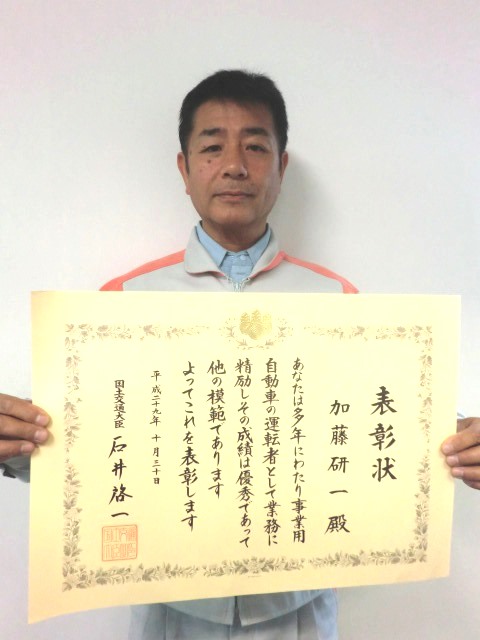 表彰状
加藤研一殿
あなたは多年にわたり事業用
自動車の運転者として業務に
精励しその成績は優秀であって
他の模範であります
よってこれを表彰します
平成二十九年十月三十日
国土交通大臣 石井啓一